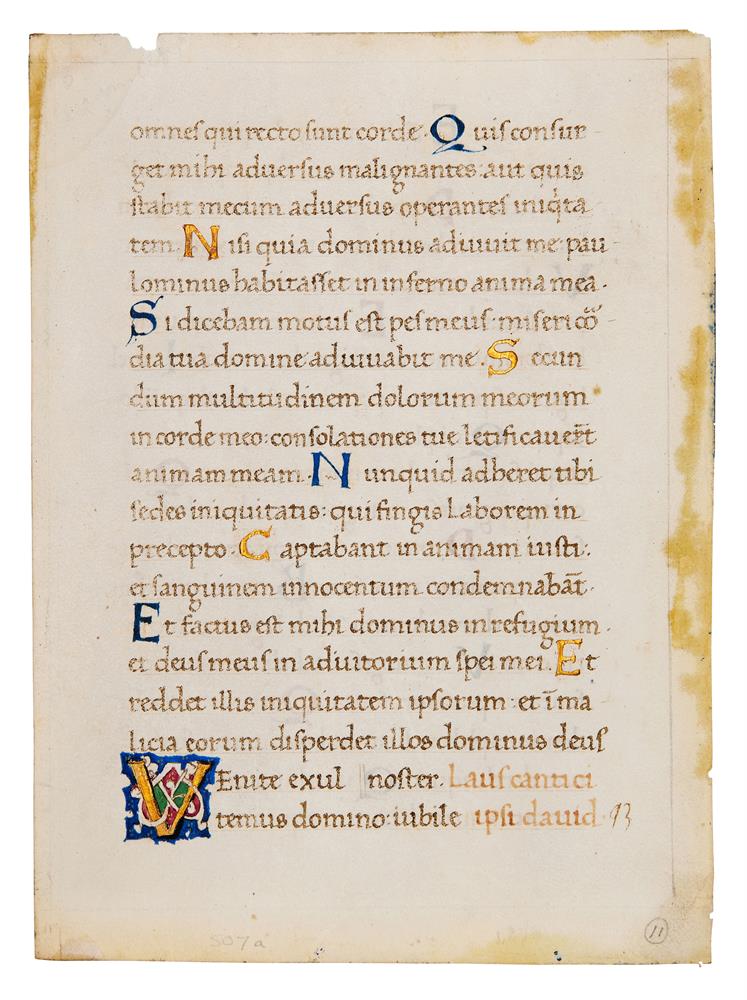 omnes qui recto sunt corde. Quis consur
get mihi adversus malignantes: aut quis
stabit mecum adversus operantes iniq̇ta
tem. Nisi quia dominus adiuuit me: pau
lominus habitasset in inferno anima mea.
Si dicebam motus est pes meus: misericō
dia tua domine adiuuabit me. Secun
dum multitudinem dolorum meorum
in corde meo: consolationes tue letificauer̄t
animam meam. Nunquid adheret tibi
sedes iniquitatis: qui fingis laborem in
precepto. Captabant in animam iusti:
et sanguinem innocentum condemnabāt.
Et factus est mihi dominus in refugium.
et deus meus in adiutorium spei mei. Et
reddet illis iniquitatem ipsorum: et ī ma
licia eorum disperdet illos dominus deus
Venite exul noster. Laus cantici
temus domino: iubile ipsi dauid. 93
507a
11